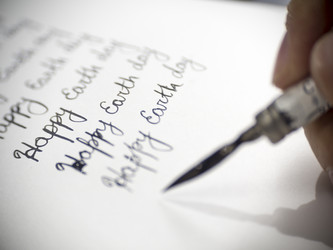 Earth day
Happy Earth day
Happy Earth day
Happy Earth day
Happy Earth day